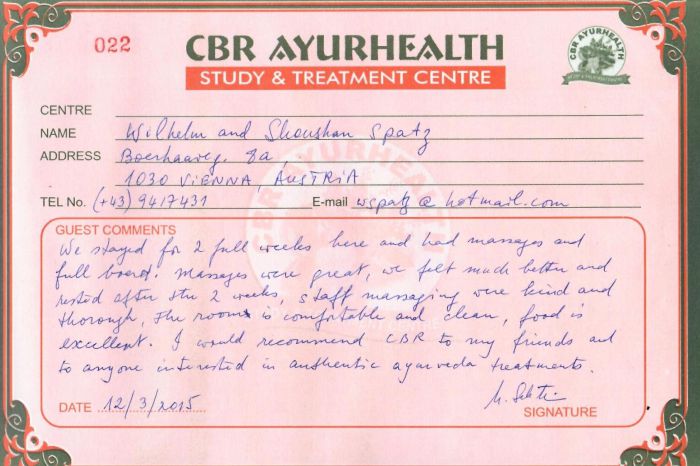 022
CBR AYURHEALTH
STUDY & TREATMENT CENTRE
CBR AYURHEALTH
STUDY & TREATMENT CENTRE
CENTRE
NAME Wilhelm and Shoushan Spatz
ADDRESS Boerhaaveg. 8a,
1030 VIENNA, AUSTRIA
TEL No. (+43) 9417431 E-mail wspatz@hotmail.com
CBR AYURHEALTH
GUEST COMMENTS
We stayed for 2 full weeks here and had massages and
full board. Massages were great, we felt much better and
rested after the 2 weeks, staff massaging were kind and
thorough, the room is comfortable and clean, food is
excellent. I would recommend CBR to my friends and
to anyone interested in authentic ayurveda treatments.
DATE 12/3/2015
SIGNATURE